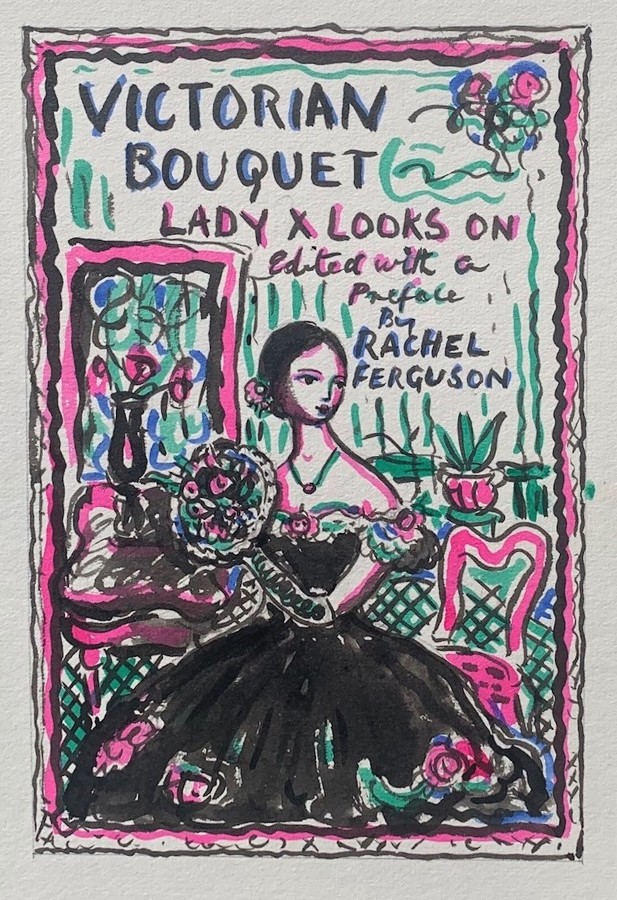 VICTORIAN
BOUQUET
LADY X LOOKS ON
Edited with a
Preface
By
RACHEL
FERGUSON